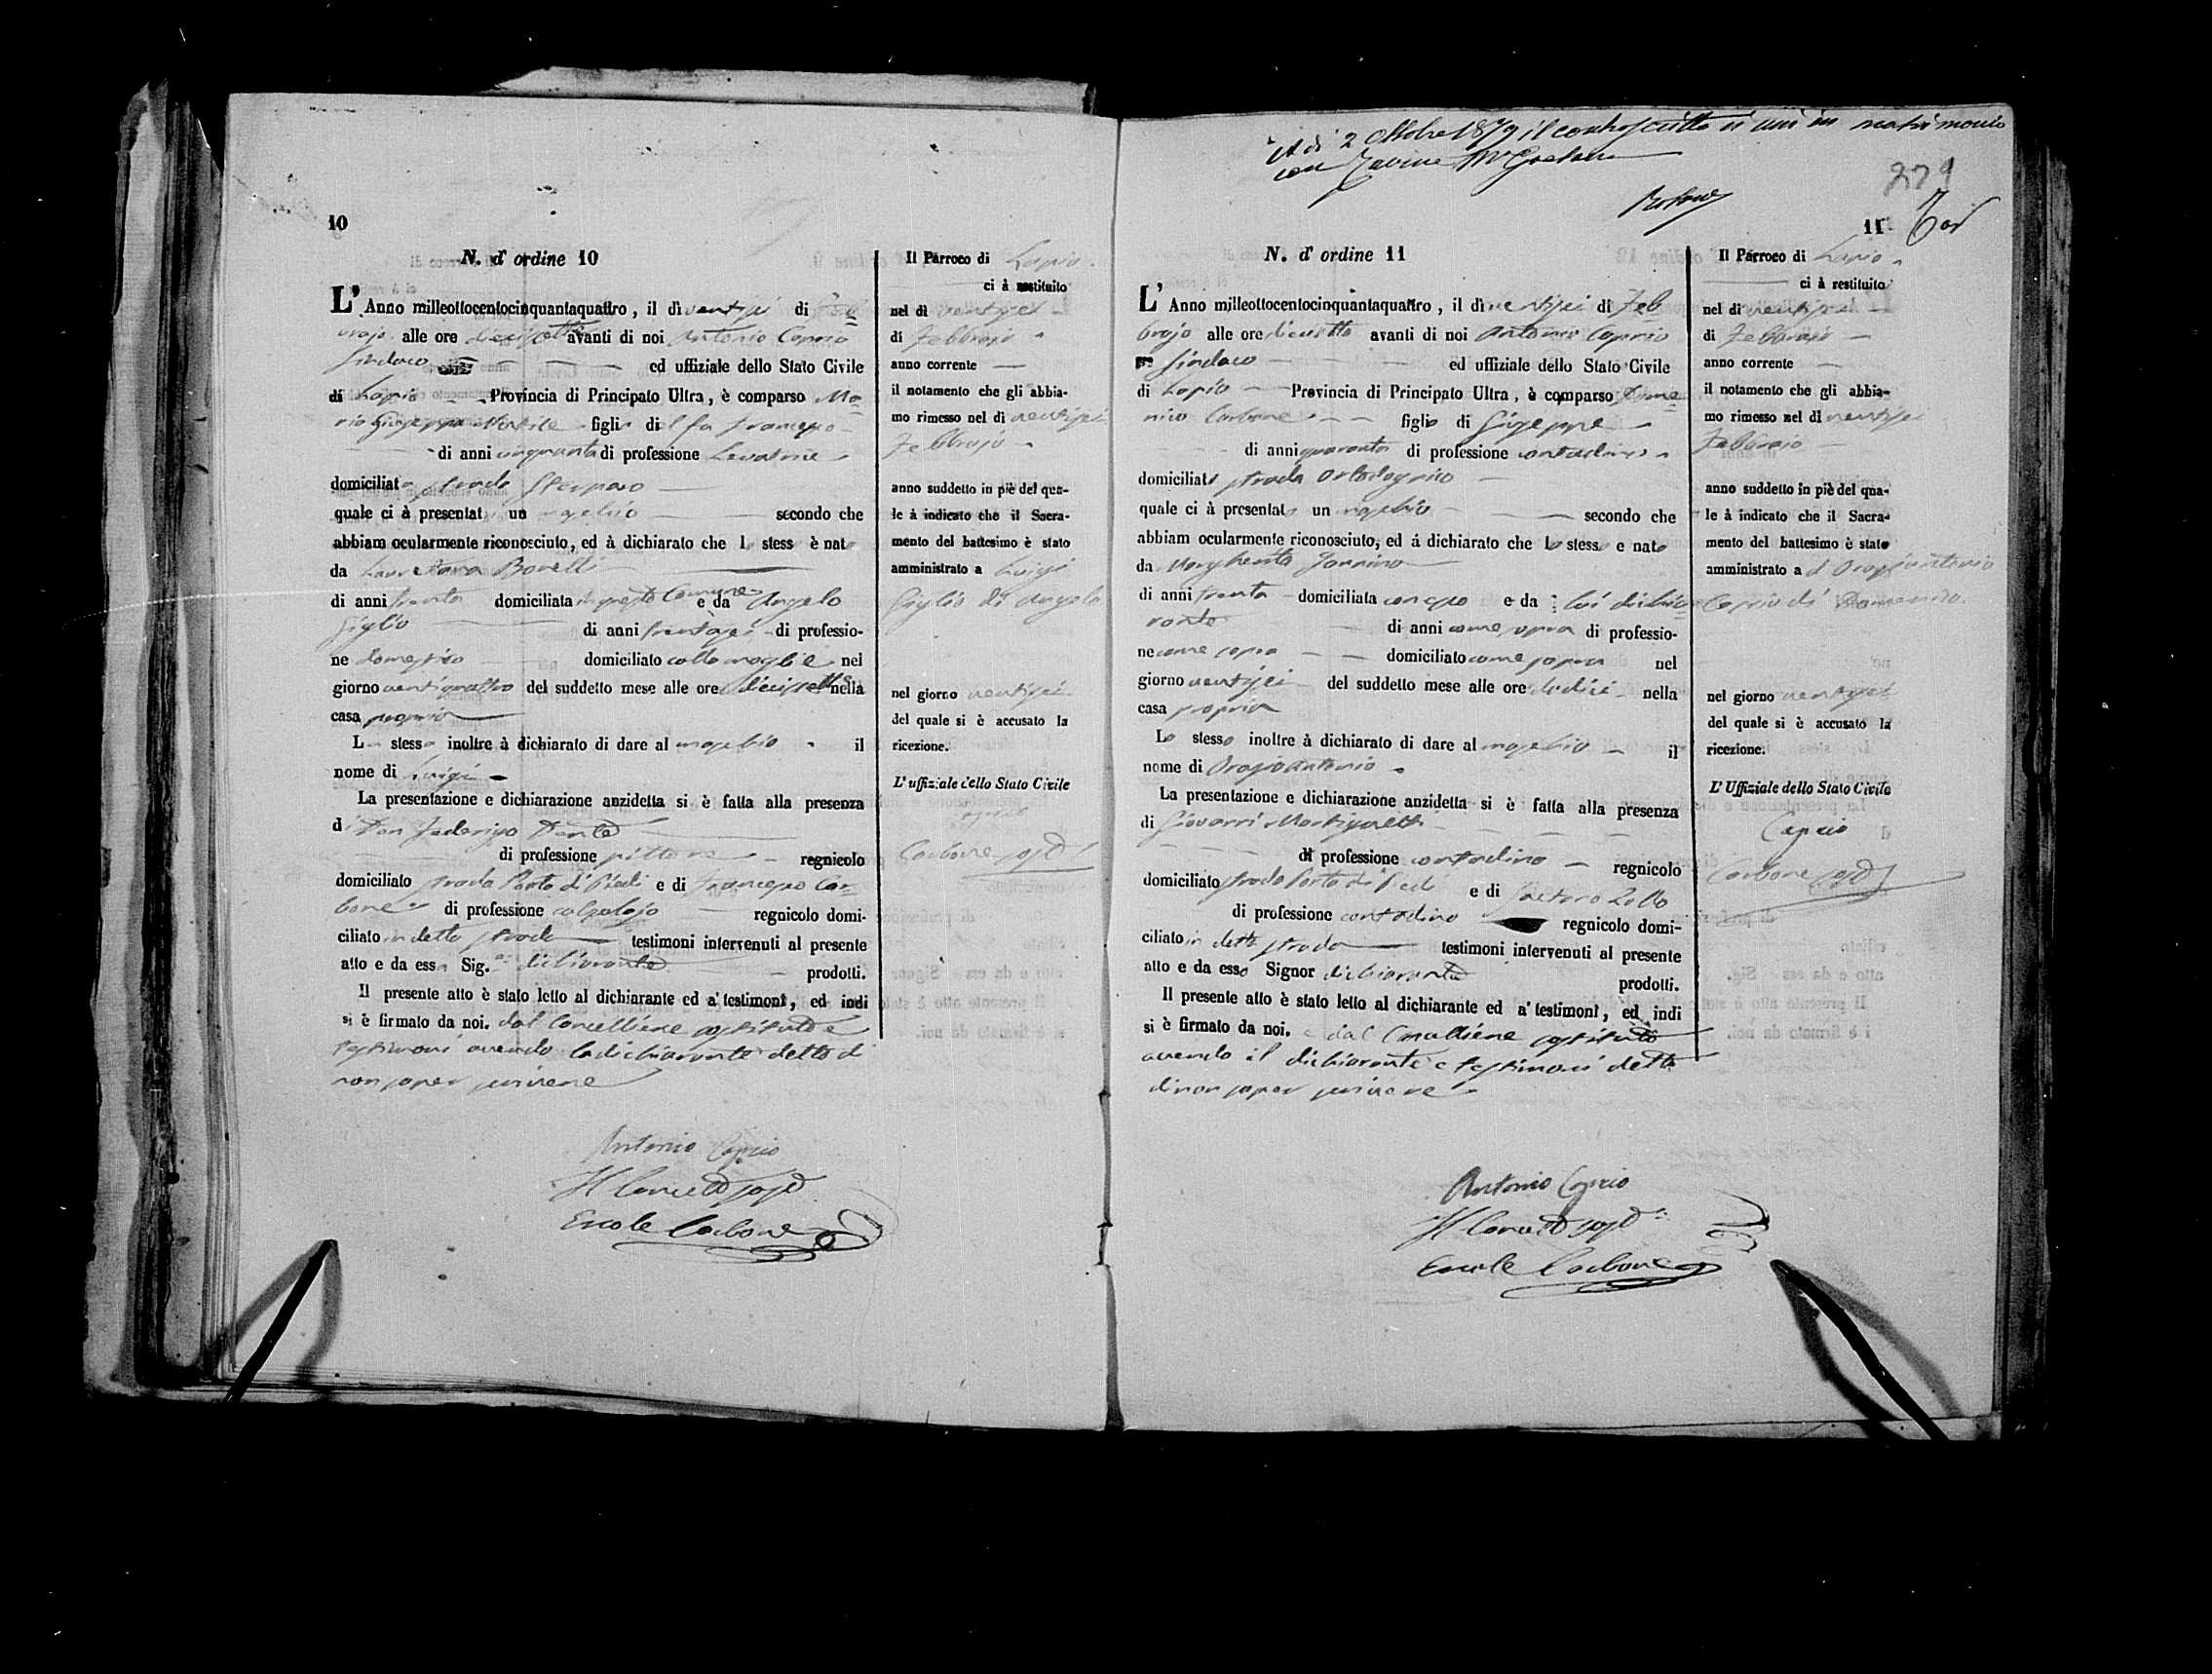 10
N. d' ordine 10
L' Anno milleottocentocinquantaquattro, il dì ventisei di Feb
brajo alle ore diecisette avanti di noi Antonio Caprio
Sindaco ed uffiziale dello Stato Civile
di Lapio Provincia di Principato Ultra, è comparso Ma
ria Giuseppa figlia del fu Francesco
di anni cinquanta di professione Levatrice
domiciliata strada
quale ci à presentato un maschio secondo che
abbiam ocularmente riconosciuto, ed à dichiarato che lo stesso è nato
da Borelli
di anni trenta domiciliata in questo Comune e da Angelo
Giglio di anni trentasei di professio-
ne domestico domiciliato colla moglie nel
giorno ventiquattro del suddetto mese alle ore diecisette nella
casa propria
La stessa inoltre à dichiarato di dare al maschio il
nome di Luigi
La presentazione e dichiarazione anzidetta si è fatta alla presenza
di Don Federigo Dente
di professione pittore regnicolo
domiciliato strada Porta di Piedi e di Francesco Car
bone di professione calzolajo regnicolo domi-
ciliato in detta strada testimoni intervenuti al presente
atto e da essa Sig.ra dichiarante prodotti.
Il presente atto è stato letto al dichiarante ed a' testimonî, ed indi
si è firmato da noi. dal Cancelliere sostituto e
testimoni avendo la dichiarante detto di
non saper scrivere
Antonio Caprio
Il Canc. sost.
Ercole Carbone
Il Parroco di Lapio
ci à restituito
nel dì ventisei
di Febbrajo
anno corrente
il notamento che gli abbia-
mo rimesso nel dì ventisei
Febbrajo
anno suddetto in piè del qua-
le à indicato che il Sacra-
mento del battesimo è stato
amministrato a Luigi
Giglio di Angelo
nel giorno ventisei
del quale si è accusato la
ricezione.
L' uffiziale dello Stato Civile
Caprio
Carbone sost.
A dì 2 Ottobre 1879 il controscritto si unì in matrimonio
con
279
11
N. d' ordine 11
L' Anno milleottocentocinquantaquattro, il dì ventisei di Feb
brajo alle ore avanti di noi Antonio Caprio
Sindaco ed uffiziale dello Stato Civile
di Lapio Provincia di Principato Ultra, è comparso Dome
nico Carbone figlio di Giuseppe
di anni quaranta di professione contadino
domiciliato strada
quale ci à presentato un maschio secondo che
abbiam ocularmente riconosciuto, ed á dichiarato che lo stesso e nato
da Margherita Jannino
di anni trenta domiciliata con esso e da lui dichia
rante di anni come sopra di professio-
ne come sopra domiciliato come sopra nel
giorno ventisei del suddetto mese alle ore dodici nella
casa propria
Lo stesso inoltre à dichiarato di dare al maschio il
nome di Orazioantonio
La presentazione e dichiarazione anzidetta si è fatta alla presenza
di Giovanni Martignetti
di professione contadino regnicolo
domiciliato strada Porta di Piedi e di Gaetano Zollo
di professione contadino regnicolo domi-
ciliato in detta strada testimoni intervenuti al presente
atto e da esso Signor dichiarante prodotti.
Il presente atto è stato letto al dichiarante ed a' testimonî, ed indi
si è firmato da noi. e dal Cancelliere sostituto
avendo il dichiarante e testimoni detto
di non saper scrivere
Antonio Caprio
Il Canc. sost.
Ercole Carbone
Il Parroco di Lapio
ci à restituito
nel dì ventisei
di Febbrajo
anno corrente
il notamento che gli abbia-
mo rimesso nel dì ventisei
Febbrajo
anno suddetto in piè del qua-
le à indicato che il Sacra-
mento del battesimo è stato
amministrato a Orazioantonio
Caprio di Domenico
nel giorno ventisei
del quale si è accusato la
ricezione.
L' Uffiziale dello Stato Civile
Caprio
Carbone sost.